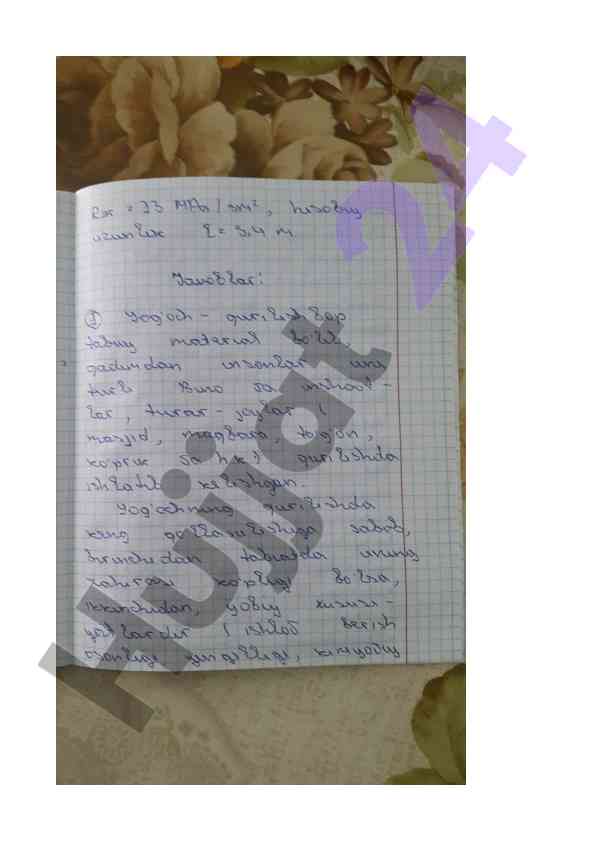 uzunlik l = 3,4 m
Javoblar:
① Yog'och - qurilishbop
tabiiy material bo'lib,
qadimdan insonlar uni
turli bino va inshoot-
lar, turar-joylar (
masjid, maqbara, to'g'on,
ko'prik va h.k.) qurilishda
ishlatib kelishgan.
Yog'ochning qurilishda
keng qo'llanilishiga sabab,
birinchidan tabiatda uning
zahirasi ko'pligi bo'lsa,
ikkinchidan, ijobiy xususi-
yatlaridir (ishlov berish
osonligi, yengilligi, kimyoviy
Hujjat 24